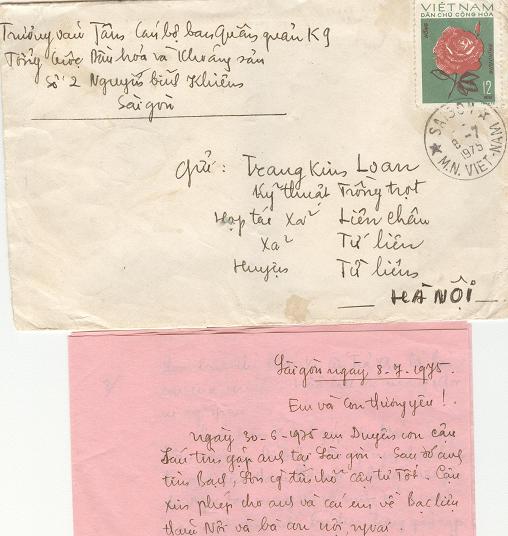 Trương văn Tân Cán bộ ban Quân quản K9
Tổng cục Dầu hóa và Khoáng sản
Số 2 Nguyễn bỉnh Khiêm
Sàigòn
VIỆT NAM
DÂN CHỦ CỘNG HÒA
12
SAIGON
8-7
1975
M.N. VIET-NAM
Gửi: Trang Kim Loan
Kỹ thuật Trồng trọt
Hợp tác Xã Liên châu
Xã Tứ liên
Huyện Từ liêm
HÀ NỘI
Sàigòn ngày 8-7-1975.
Em và Con thương yêu!
Ngày 30-6-1975 em Duyên con cậu
Sáu tìm gặp anh tại Sàigòn. Sau đó anh
tìm Bạch, Sơn có tin chở cậu tư Tốt. Cậu
xin phép cho anh và cái em về Bạc liêu
thăm Nội và bà con nội, ngoại.